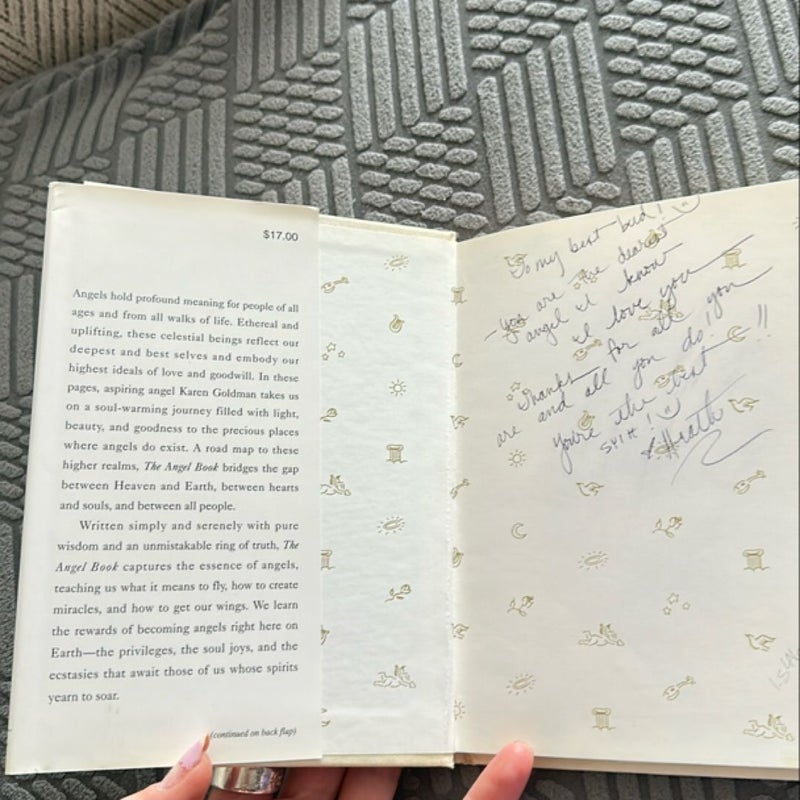 $17.00
Angels hold profound meaning for people of all
ages and from all walks of life. Ethereal and
uplifting, these celestial beings reflect our
deepest and best selves and embody our
highest ideals of love and goodwill. In these
pages, aspiring angel Karen Goldman takes us
on a soul-warming journey filled with light,
beauty, and goodness to the precious places
where angels do exist. A road map to these
higher realms, The Angel Book bridges the gap
between Heaven and Earth, between hearts
and souls, and between all people.
Written simply and serenely with pure
wisdom and an unmistakable ring of truth, The
Angel Book captures the essence of angels,
teaching us what it means to fly, how to create
miracles, and how to get our wings. We learn
the rewards of becoming angels right here on
Earth—the privileges, the soul joys, and the
ecstasies that await those of us whose spirits
yearn to soar.
(continued on back flap)
To my best bud!
- You are the dearest
angel I know
I love you
Thanks for all you
are and all you do!!!
you're the best